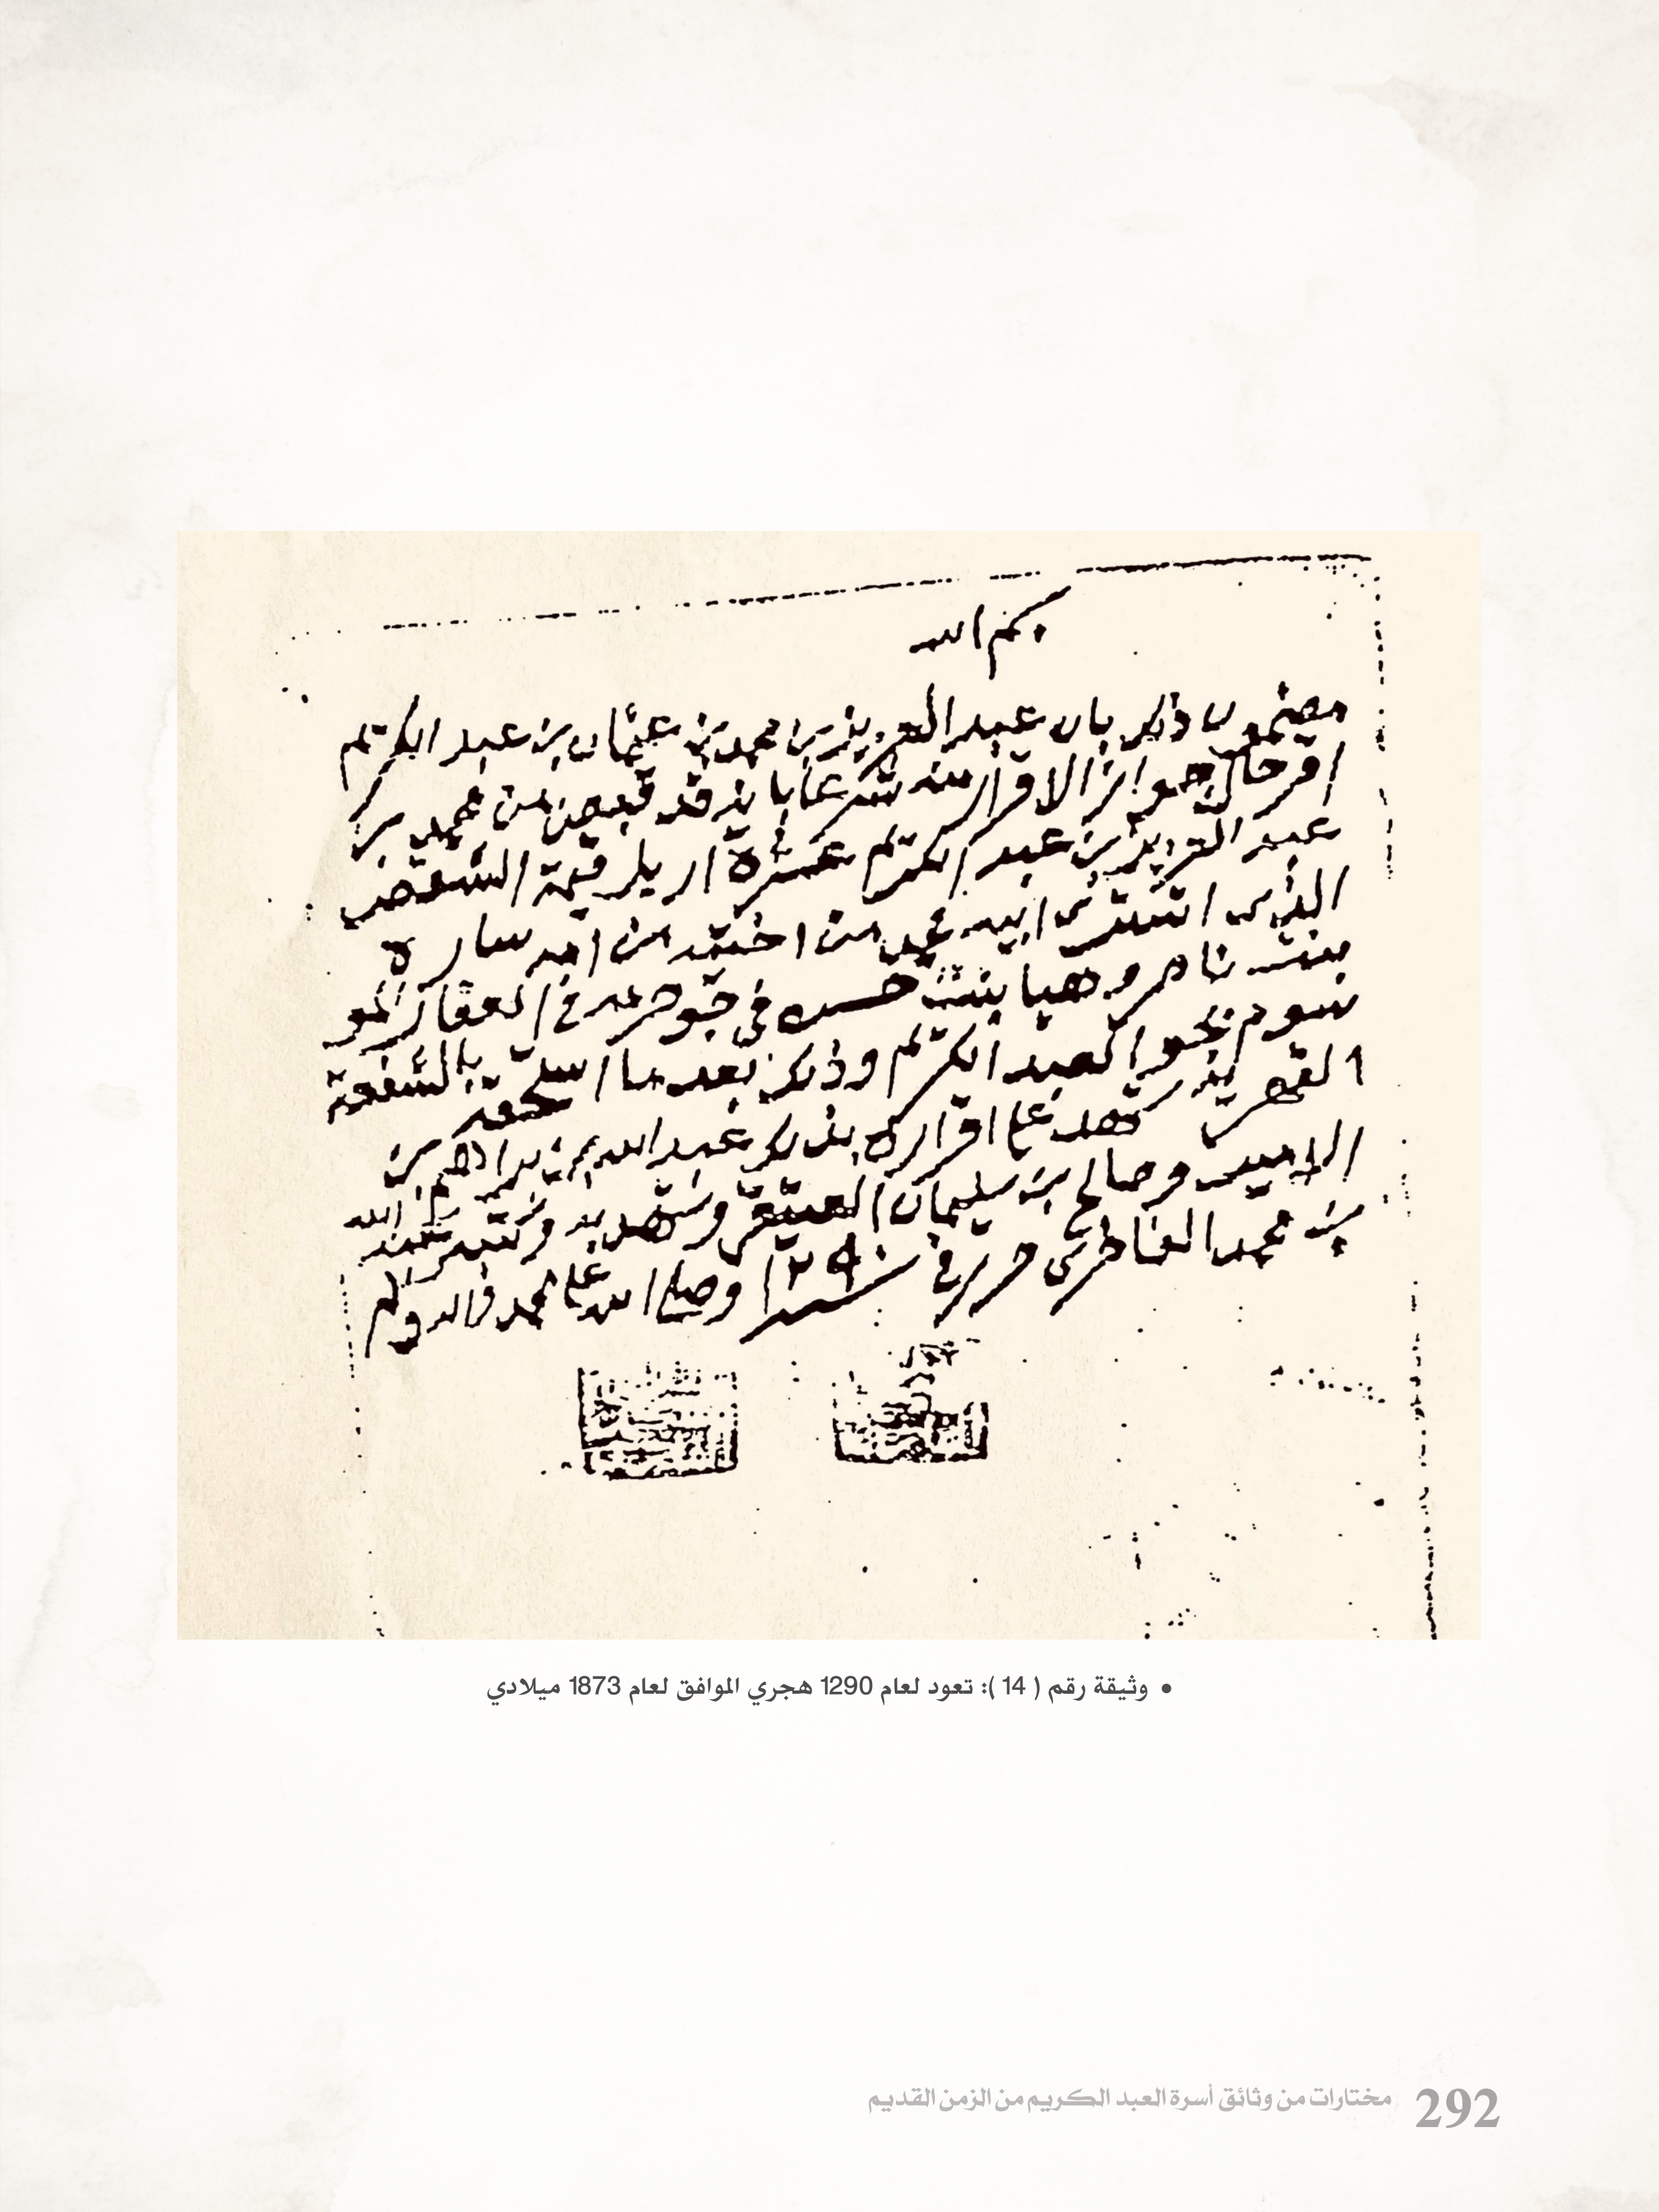 بسم الله
مضمون ذكر بان عبد العزيز بن محمد بن عثمان بن عبد الكريم
اقر حال جواز الاقرار منه شرعا بانه قد قبض من محمد بن
عبد العزيز بن عبد الكريم عشرة اريل قيمة الشقص
الذي اشترى ابيه محمد من اخته من امه سارة
بنت ناصر وهيا بنت حسن في جو حرمه في العقار المو
سوم بجو العبد الكريم وذكر بعد ما استحقه بالشفعة
القهرية شهد على اقراره بذلك عبد الله بن ابراهيم بن
وصالح بن سليمان العتيق وشهد به وكتبه عبد الله
بن محمد الفاطري حرر في سنة ١٢٩٠ وصلى الله على محمد واله وسلم
• وثيقة رقم ( 14 ): تعود لعام 1290 هجري الموافق لعام 1873 ميلادي
292 مختارات من وثائق أسرة العبد الكريم من الزمن القديم